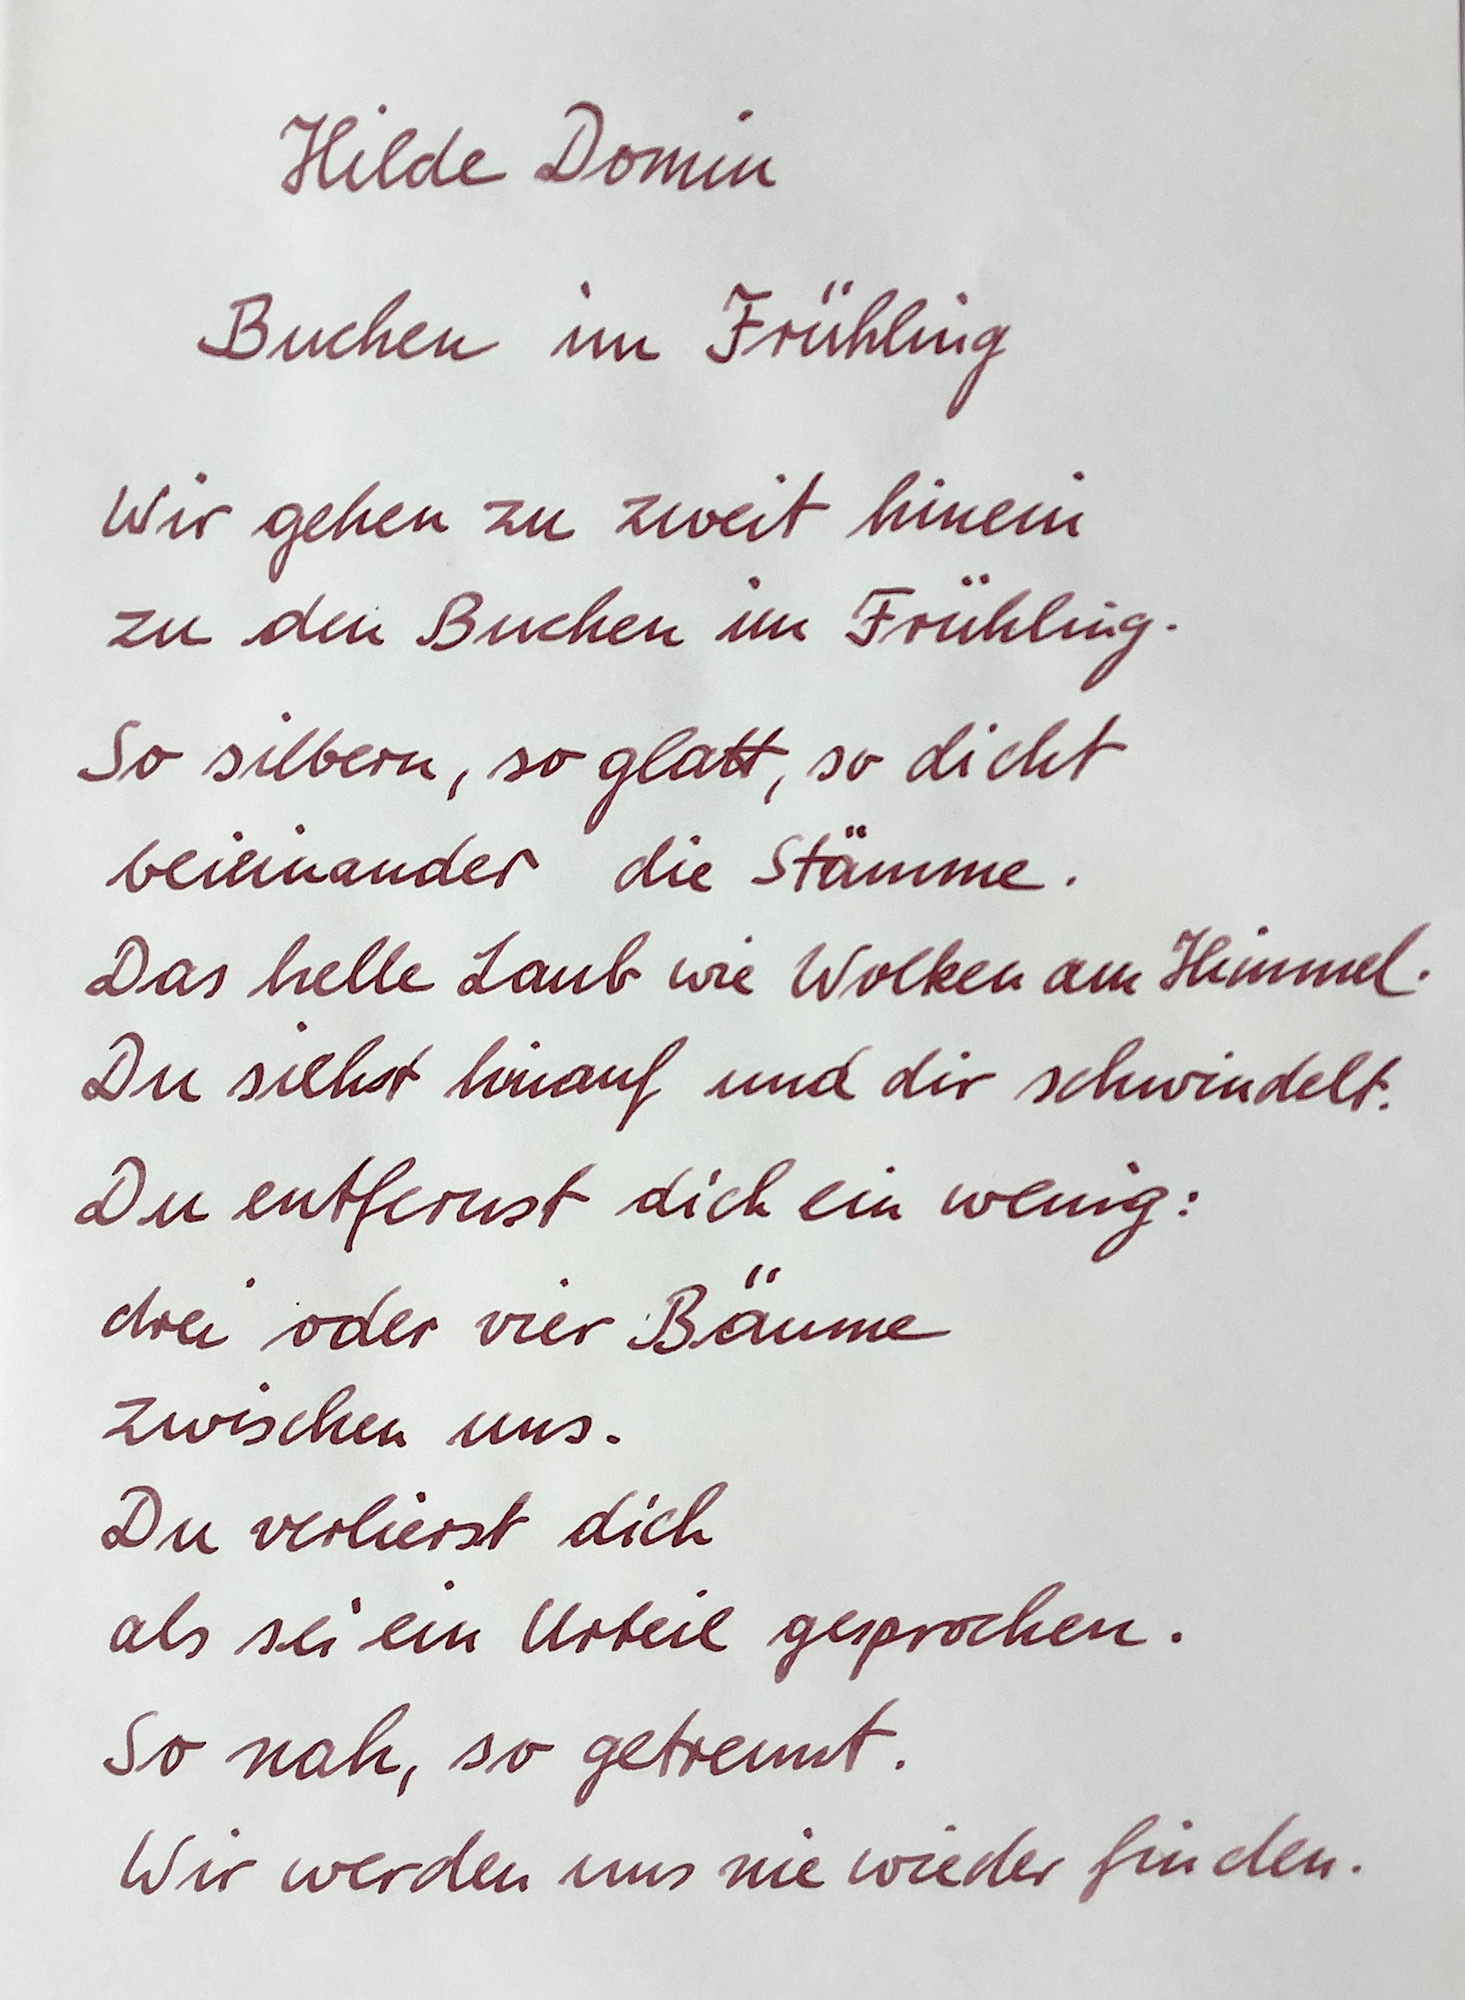 Hilde Domin
Buchen im Frühling
Wir gehen zu zweit hinein
zu den Buchen im Frühling.
So silbern, so glatt, so dicht
beieinander die Stämme.
Das helle Laub wie Wolken am Himmel.
Du siehst hinauf und dir schwindelt.
Du entfernst dich ein wenig:
drei oder vier Bäume
zwischen uns.
Du verlierst dich
als sei ein Urteil gesprochen.
So nah, so getrennt.
Wir werden uns nie wieder finden.